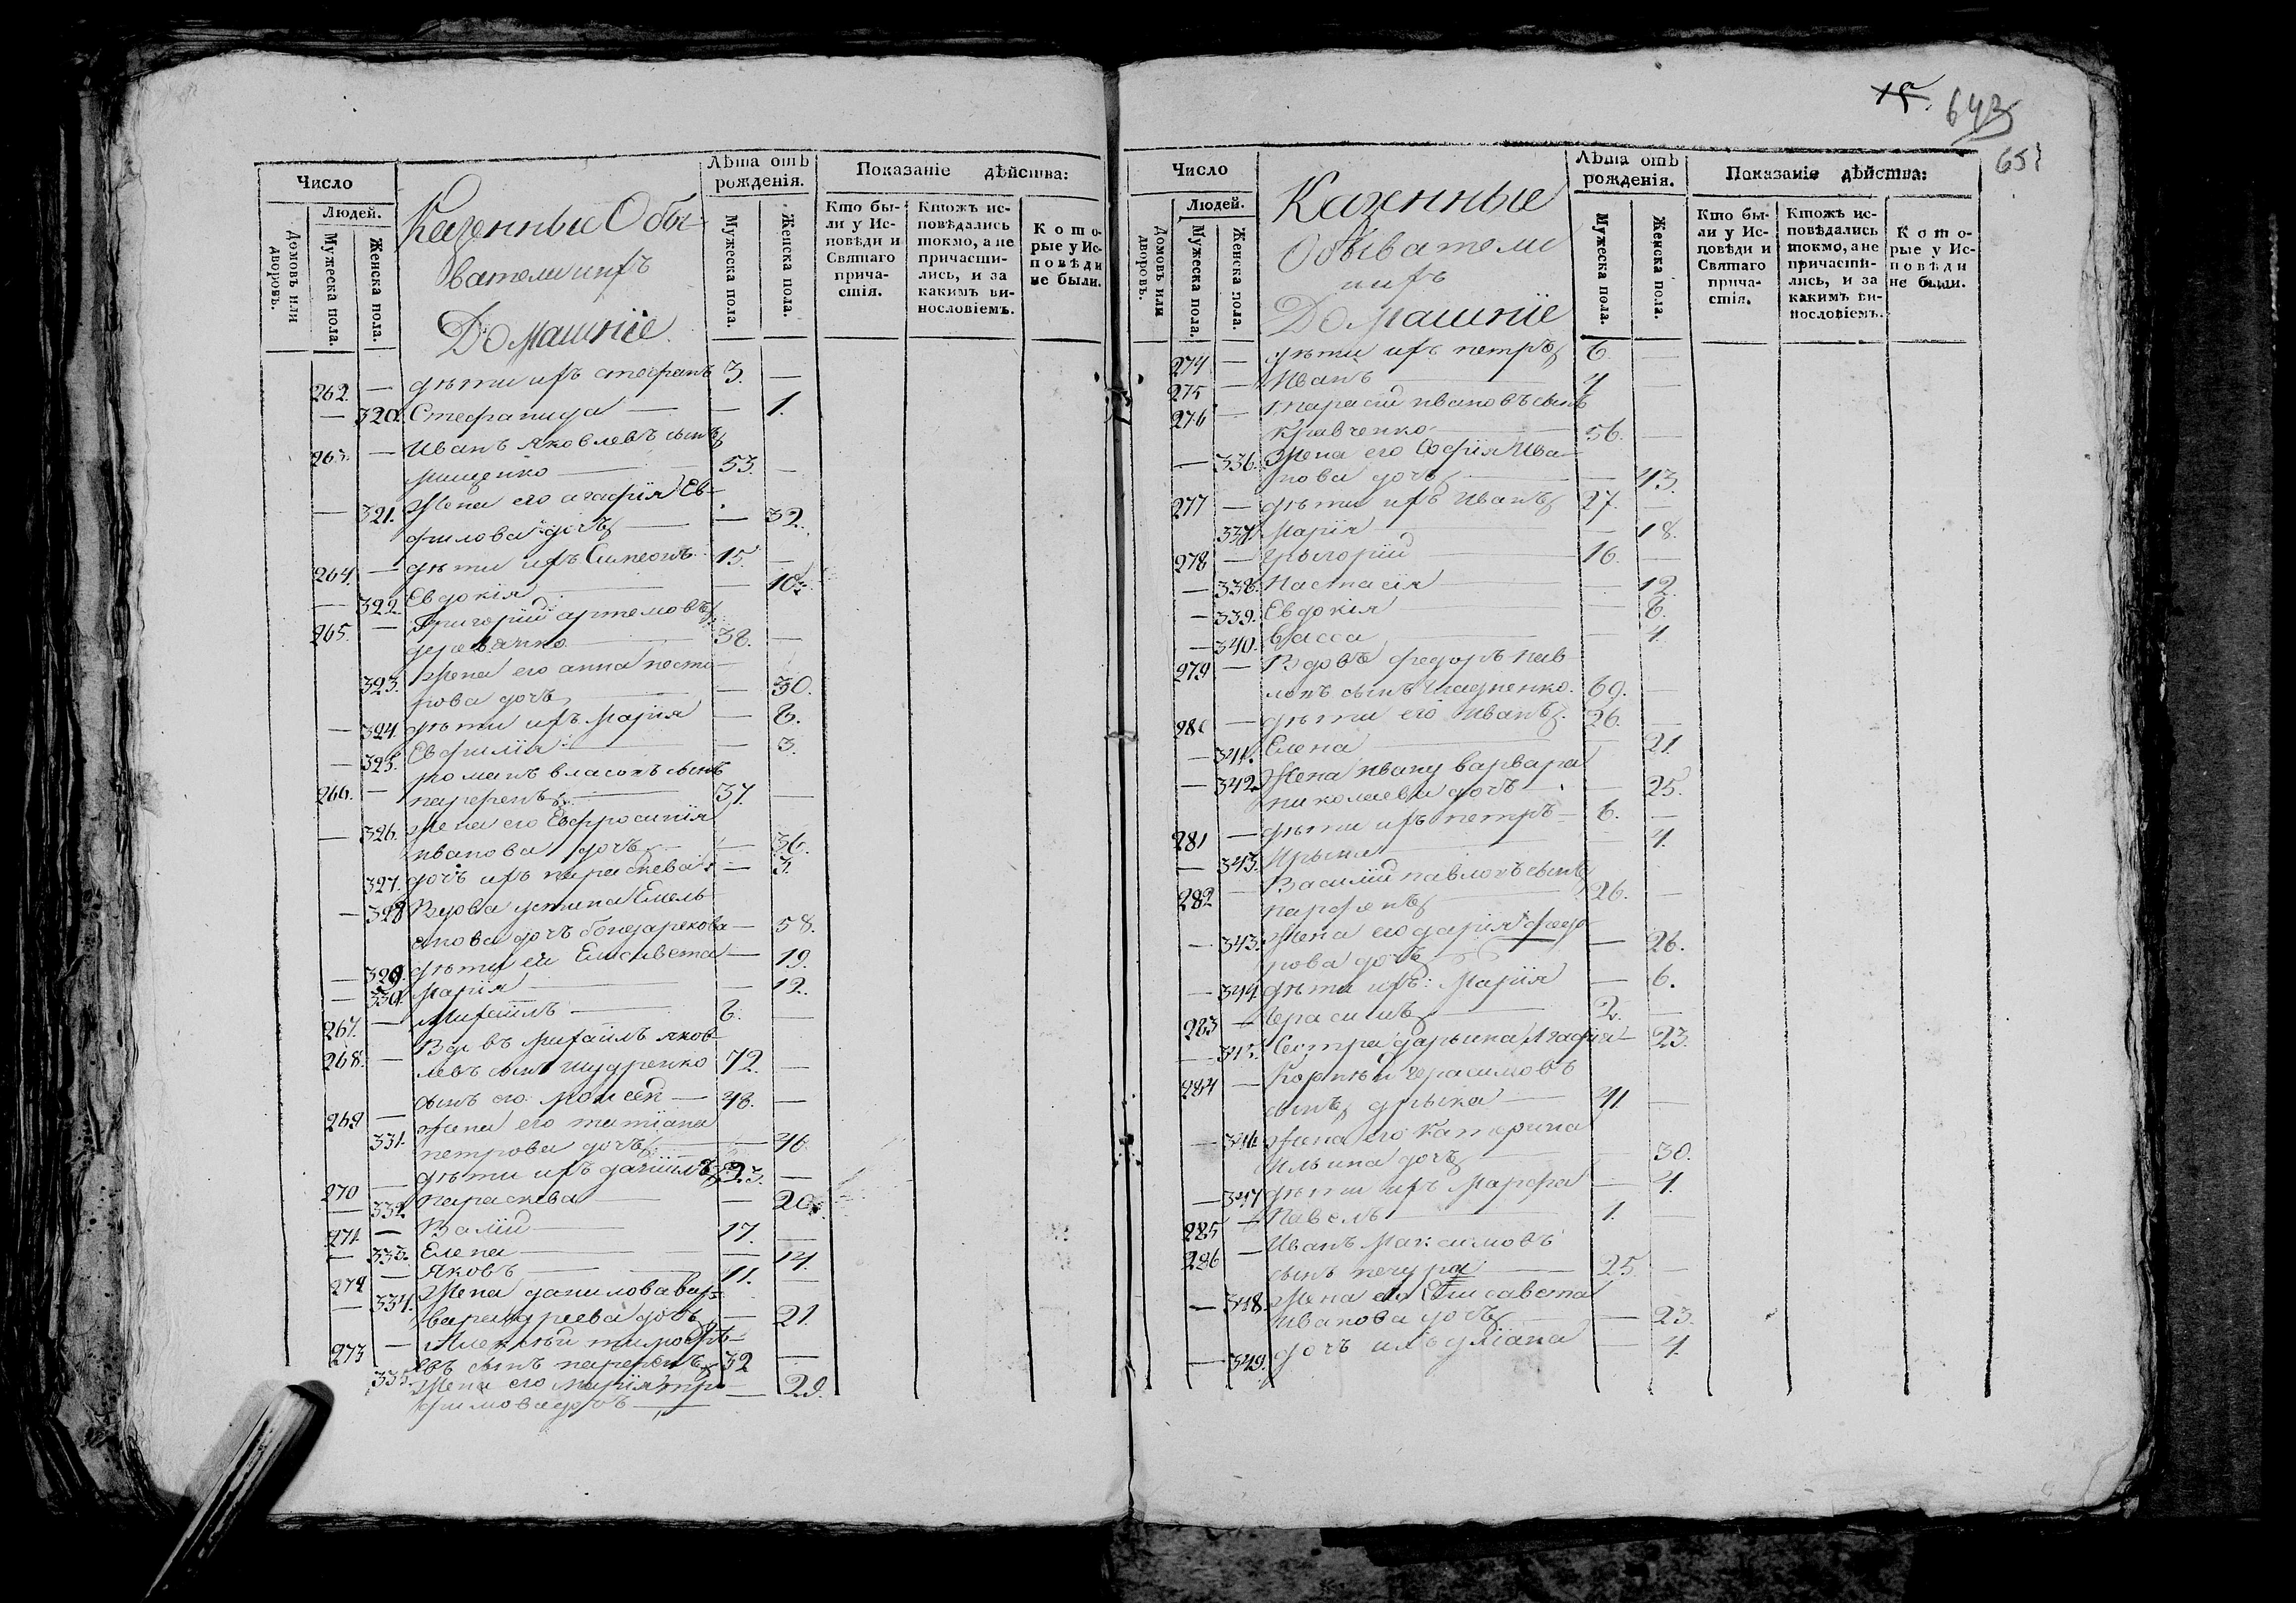 15. 643
651
Число
Людей.
Домовъ или дворовъ.
Мужеска пола.
Женска пола.
Казенные Обы-
ватели ихъ
Домашніе.
Лѣта отъ рожденія.
Мужеска пола.
Женска пола.
Показаніе дѣйства:
Кто бы-
ли у Ис-
повѣди и
Святаго
прича-
стія.
Ктожъ ис-
повѣдались
токмо, а не
причасти-
лись, и за
какимъ ви-
нословіемъ.
Кото-
рые у Ис-
повѣди
не были.
262. — дѣти ихъ стефанъ 3. —
— 320. Стефанида — — 1.
263. — Иванъ яковлевъ сынъ
мищенко 53. —
— 321. Жена его агафія Ев-
филова дочь — 32.
264. — дѣти ихъ Симеонъ 15. —
— 322. Евдокія — 10.
265. — Григорій артемовъ
38. —
323. Жена его анна
нова дочь — 30.
— 324. дѣти ихъ Марія — 6.
— 325. Евфимія — 3.
266. — романъ власовъ сынъ
37. —
— 326. Жена его Евфросинія
иванова дочь — 36.
327. дочь ихъ параскева — 3.
— 328. Вдова устина Емель
янова дочь бондарекова — 58.
— 329. дѣти ея Елисавета — 19.
— 330. Марія — 12.
267. — Михаилъ 6. —
268. — Вдовъ Михаилъ яков
левъ сынъ шудренко 72. —
269 — сынъ его Моисей — 48. —
331. жена его татіана
петрова дочь — 46.
270 — дѣти ихъ даніилъ 23. —
— 332. Параскева — 20.
271. — 17. —
— 333. Елена — 14.
272 — Яковъ 11. —
— 334. Жена данилова вар-
вара дочь — 21.
273 — Алексѣй тимофѣ-
евъ сынъ 32 —
335. Жена его марія тро
фимова дочь — 29.
Число
Людей.
Домовъ или дворовъ.
Мужеска пола.
Женска пола.
Казенные
Обыватели
ихъ
Домашніе
Лѣта отъ рожденія.
Мужеска пола.
Женска пола.
Показаніе дѣйства:
Кто бы-
ли у Ис-
повѣди и
Святаго
прича-
стія.
Ктожъ ис-
повѣдались
токмо, а не
причасти-
лись, и за
какимъ ви-
нословіемъ.
Кото-
рые у Ис-
повѣди
не были.
274 — дѣти ихъ петръ 6. —
275 — Иванъ 4 —
276 — тарасій ивановъ сынъ
Кравченко 56. —
— 336. Жена его Софія Ива-
нова дочь — 43.
277 — дѣти ихъ Иванъ 27. —
337. Марія — 18.
278 — Григорій 16. —
— 338. Настасія — 12.
— 339. Евдокія — 6.
— 340. васса — 4.
279 — Вдовъ федоръ пав
ловъ сынъ 69. —
280 — дѣти его Иванъ 26. —
— 341. Елена — 21
— 342. Жена ивану варвара
николаева дочь — 25.
281 — дѣти ихъ петръ 6. —
— 343. — 4.
282 — Василій павловъ сынъ
26. —
— 343. Жена его дарія федо
рова дочь — 26.
— 344. дѣти ихъ: Марія — 6.
283 — герасимъ 2. —
— 345. Сестра Агафія — 23.
284 — Корнѣй герасимовъ
сынъ 41. —
— 346. жена его Катерина
Ильина дочь — 30.
— 347 дѣти ихъ Марфа — 4.
285 — Павелъ 1. —
286 — Иванъ Максимовъ
сынъ печура 25. —
— 348. Жена его Елисавета
иванова дочь — 23.
— 349. дочь ихъ уліана — 4.